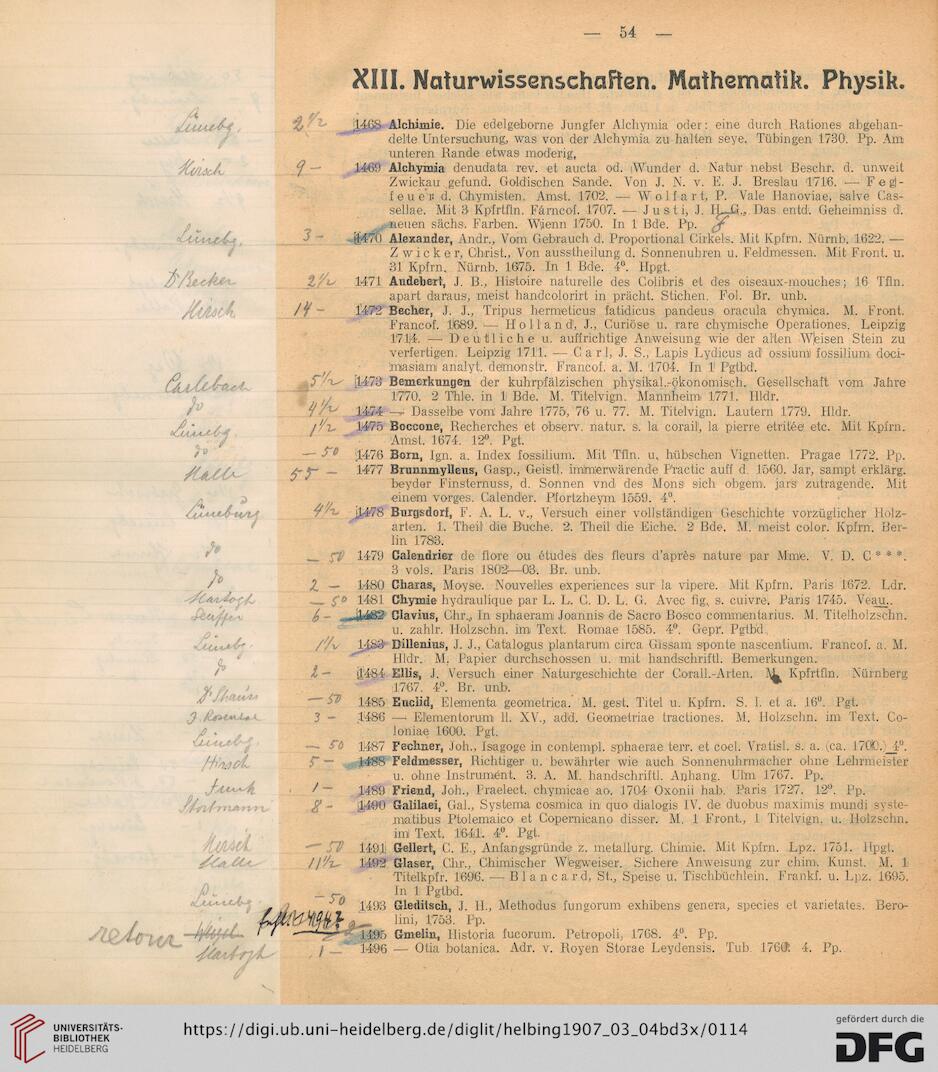 — 54 —
XIII. Naturwissenschaften. Mathematik. Physik.
Lünebg. 2 1/2 1468 Alchimie. Die edelgeborne Jungfer Alchymia oder: eine durch Rationes abgehan-
delte Untersuchung, was von der Alchymia zu halten seye. Tübingen 1730. Pp. Am
unteren Rande etwas moderig,
Hirsch 9 – 1469 Alchymia denudata rev. et aucta od. Wunder d. Natur nebst Beschr. d. unweit
Zwickau gefund. Goldischen Sande. Von J. N. v. E. J. Breslau 1716. — Feg-
feuer d. Chymisten. Amst. 1702. — Wolfart, P. Vale Hanoviae, salve Cas-
sellae. Mit 3 Kpfrtfln. Fárncof. 1707. — Justi, J. H. G., Das entd. Geheimniss d.
neuen sächs. Farben. Wienn 1750. In 1 Bde. Pp.
Lünebg. 3 – 1470 Alexander, Andr., Vom Gebrauch d. Proportional Cirkels. Mit Kpfrn. Nürnb. 1622. —
Zwicker, Christ., Von ausstheilung d. Sonnenuhren u. Feldmessen. Mit Front. u.
31 Kpfrn. Nürnb. 1675. In 1 Bde. 4⁰. Hpgt.
Dr Becker 2 1/2 1471 Audebert, J. B., Histoire naturelle des Colibris et des oiseaux-mouches; 16 Tfln.
apart daraus, meist handcolorirt in prächt. Stichen. Fol. Br. unb.
Hirsch 14 – 1472 Becher, J. J., Tripus hermeticus fatidicus pandeus oracula chymica. M. Front.
Francof. 1689. — Holland, J., Curiöse u. rare chymische Operationes. Leipzig
1714. — Deutliche u. auffrichtige Anweisung wie der alten Weisen Stein zu
verfertigen. Leipzig 1711. — Carl, J. S., Lapis Lydicus ad ossium fossilium doci-
masiam analyt. demonstr. Francof. a. M. 1704. In 1 Pgtbd.
Carlebach 5 1/2 1473 Bemerkungen der kuhrpfälzischen physikal.-ökonomisch. Gesellschaft vom Jahre
1770. 2 Thle. in 1 Bde. M. Titelvign. Mannheim 1771. Hldr.
do 4 1/2 1474 — Dasselbe vom Jahre 1775, 76 u. 77. M. Titelvign. Lautern 1779. Hldr.
Lünebg. 1 1/2 1475 Boccone, Recherches et observ. natur. s. la corail, la pierre etritée etc. Mit Kpfrn.
Amst. 1674. 12⁰. Pgt.
do – 50 1476 Born, Ign. a. Index fossilium. Mit Tfln. u. hübschen Vignetten. Pragae 1772. Pp.
Halle 55 – 1477 Brunnmylleus, Gasp., Geistl. immerwärende Practic auff d. 1560. Jar, sampt erklärg.
beyder Finsternuss, d. Sonnen vnd des Mons sich obgem. jars zutragende. Mit
einem vorges. Calender. Pfortzheym 1559. 4⁰.
Lüneburg 4 1/2 1478 Burgsdorf, F. A. L. v., Versuch einer vollständigen Geschichte vorzüglicher Holz-
arten. 1. Theil die Buche. 2. Theil die Eiche. 2 Bde. M. meist color. Kpfrn. Ber-
lin 1783.
do – 50 1479 Calendrier de flore ou études des fleurs d'après nature par Mme. V. D. C***.
3 vols. Paris 1802—03. Br. unb.
do 2 – 1480 Charas, Moyse. Nouvelles experiences sur la vipere. Mit Kpfrn. Paris 1672. Ldr.
Hartogh – 50 1481 Chymie hydraulique par L. L. C. D. L. G. Avec fig. s. cuivre. Paris 1745. Veau.
6 – 1482 Clavius, Chr., In sphaeram Joannis de Sacro Bosco commentarius. M. Titelholzschn.
u. zahlr. Holzschn. im Text. Romae 1585. 4⁰. Gepr. Pgtbd.
Lünebg. 1 1/2 1483 Dillenius, J. J., Catalogus plantarum circa Gissam sponte nascentium. Francof. a. M.
Hldr. M. Papier durchschossen u. mit handschriftl. Bemerkungen.
do 2 – 1484 Ellis, J. Versuch einer Naturgeschichte der Corall.-Arten. M. Kpfrtfln. Nürnberg
1767. 4⁰. Br. unb.
– 50 1485 Euclid, Elementa geometrica. M. gest. Titel u. Kpfrn. S. l. et a. 16⁰. Pgt.
J. Rosental 3 – 1486 — Elementorum ll. XV., add. Geometriae tractiones. M. Holzschn. im Text. Co-
loniae 1600. Pgt.
Lünebg. – 50 1487 Fechner, Joh., Isagoge in contempl. sphaerae terr. et coel. Vratisl. s. a. (ca. 1700.) 4⁰.
Hirsch 5 – 1488 Feldmesser, Richtiger u. bewährter wie auch Sonnenuhrmacher ohne Lehrmeister
u. ohne Instrument. 3. A. M. handschriftl. Anhang. Ulm 1767. Pp.
Funk 1 – 1489 Friend, Joh., Praelect. chymicae ao. 1704 Oxonii hab. Paris 1727. 12⁰. Pp.
Stortmann 8 – 1490 Galilaei, Gal., Systema cosmica in quo dialogis IV. de duobus maximis mundi syste-
matibus Ptolemaico et Copernicano disser. M. 1 Front., 1 Titelvign. u. Holzschn.
im Text. 1641. 4⁰. Pgt.
Hirsch – 50 1491 Gellert, C. E., Anfangsgründe z. metallurg. Chimie. Mit Kpfrn. Lpz. 1751. Hpgt.
Halle 11 1/2 1492 Glaser, Chr., Chimischer Wegweiser. Sichere Anweisung zur chim. Kunst. M. 1
Titelkpfr. 1696. — Blancard, St., Speise u. Tischbüchlein. Frankf. u. Lpz. 1695.
In 1 Pgtbd.
Lünebg. – 50 1493 Gleditsch, J. H., Methodus fungorum exhibens genera, species et varietates. Bero-
lini, 1753. Pp.
retour 1495 Gmelin, Historia fucorum. Petropoli, 1768. 4⁰. Pp.
Hartogh 1 – 1496 — Otia botanica. Adr. v. Royen Storae Leydensis. Tub. 1760. 4. Pp.
UNIVERSITÄTS-
BIBLIOTHEK
HEIDELBERG
https://digi.ub.uni-heidelberg.de/diglit/helbing1907_03_04bd3x/0114
gefördert durch die
DFG